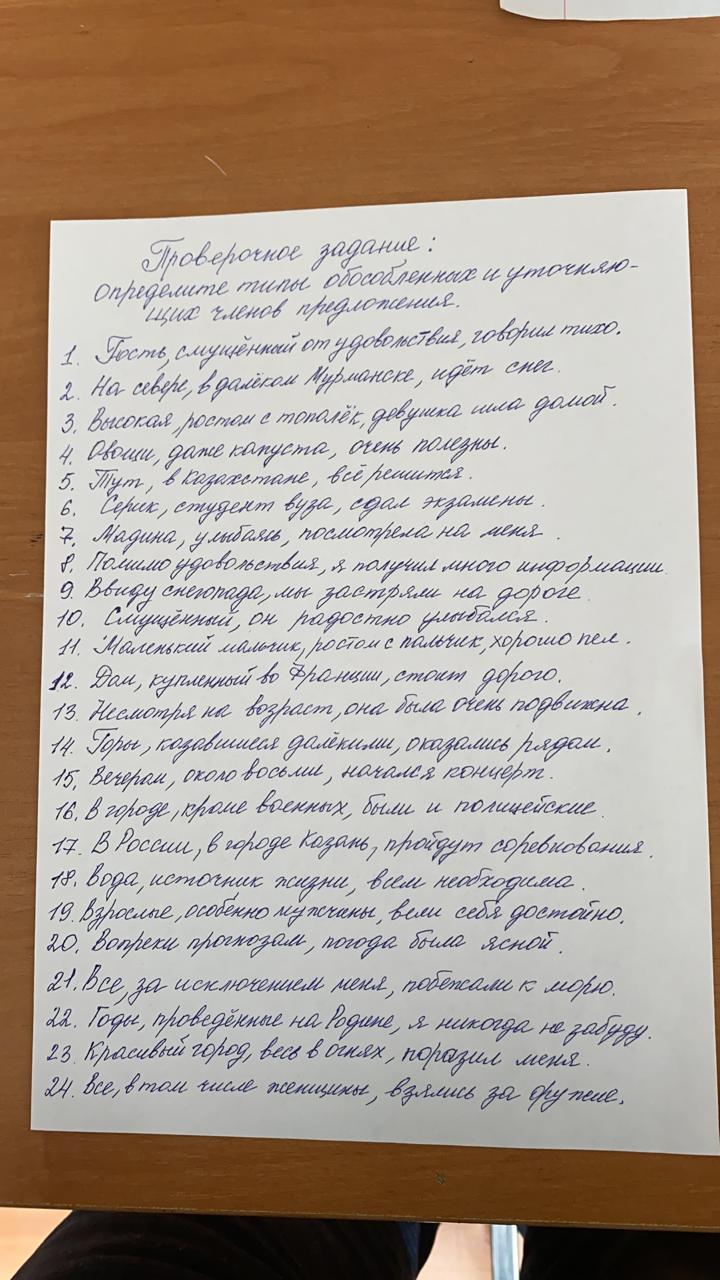 Проверочное задание:
определите типы обособленных и уточняю-
щих членов предложения.
1. Гость, смущённый от удовольствия, говорил тихо.
2. На севере, в далёком Мурманске, идёт снег.
3. Высокая, ростом с тополёк, девушка шла домой.
4. Овощи, даже капуста, очень полезны.
5. Тут, в Казахстане, всё решится.
6. Серик, студент вуза, сдал экзамены.
7. Мадина, улыбаясь, посмотрела на меня.
8. Помимо удовольствия, я получил много информации.
9. Ввиду снегопада, мы застряли на дороге.
10. Смущённый, он радостно улыбался.
11. Маленький мальчик, ростом с пальчик, хорошо пел.
12. Дом, купленный во Франции, стоит дорого.
13. Несмотря на возраст, она была очень подвижна.
14. Горы, казавшиеся далёкими, оказались рядом.
15. Вечером, около восьми, начался концерт.
16. В городе, кроме военных, были и полицейские.
17. В России, в городе Казань, пройдут соревнования.
18. Вода, источник жизни, всем необходима.
19. Взрослые, особенно мужчины, вели себя достойно.
20. Вопреки прогнозам, погода была ясной.
21. Все, за исключением меня, побежали к морю.
22. Годы, проведённые на Родине, я никогда не забуду.
23. Красивый город, весь в огнях, поразил меня.
24. Все, в том числе женщины, взялись за оружие.